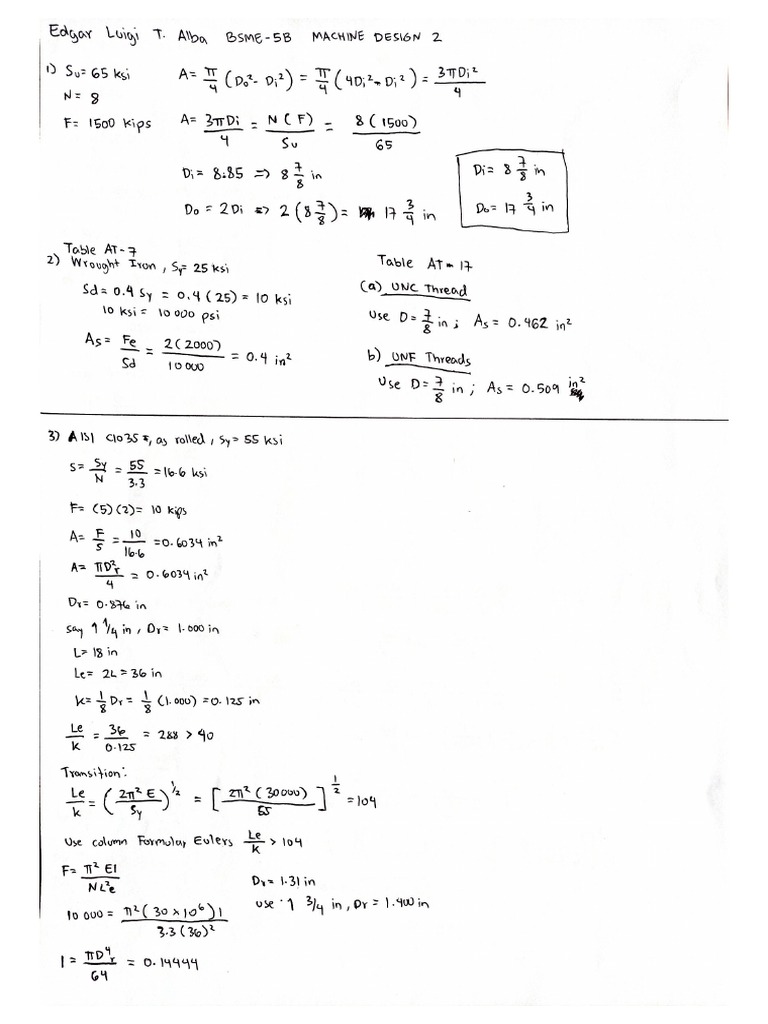 Edgar Luigi T. Alba BSME-5B MACHINE DESIGN 2
1) Su = 65 ksi
N = 8
F = 1500 kips
A = π/4 (Do² - Di²) = π/4 (4Di² - Di²) = 3πDi²/4
A = 3πDi/4 = N(F)/Su = 8(1500)/65
Di = 8.85 => 8 7/8 in
Do = 2Di => 2(8 7/8) = 17 3/4 in
Di = 8 7/8 in
Do = 17 3/4 in
Table AT-7
2) Wrought Iron, Sy = 25 ksi
Sd = 0.4 Sy = 0.4(25) = 10 ksi
10 ksi = 10 000 psi
As = Fe/Sd = 2(2000)/10000 = 0.4 in²
Table AT-17
(a) UNC Thread
Use D = 7/8 in; As = 0.462 in²
b) UNF Threads
Use D = 7/8 in; As = 0.509 in²
3) AISI C1035, as rolled, Sy = 55 ksi
S = Sy/N = 55/3.3 = 16.6 ksi
F = (5)(2) = 10 kips
A = F/S = 10/16.6 = 0.6034 in²
A = πDr²/4 = 0.6034 in²
Dr = 0.876 in
say 1 1/4 in, Dr = 1.000 in
L = 18 in
Le = 2L = 36 in
k = 1/8 Dr = 1/8 (1.000) = 0.125 in
Le/k = 36/0.125 = 288 > 40
Transition:
Le/k = (2π² E/Sy)^1/2 = [2π² (30000)/55]^1/2 = 104
Use column Formular Eulers Le/k > 104
F = π² EI/NL²e
10 000 = π²(30 x 10⁶)I/3.3(36)²
I = πD⁴r/64 = 0.14444
Dr = 1.31 in
use 1 3/4 in, Dr = 1.400 in